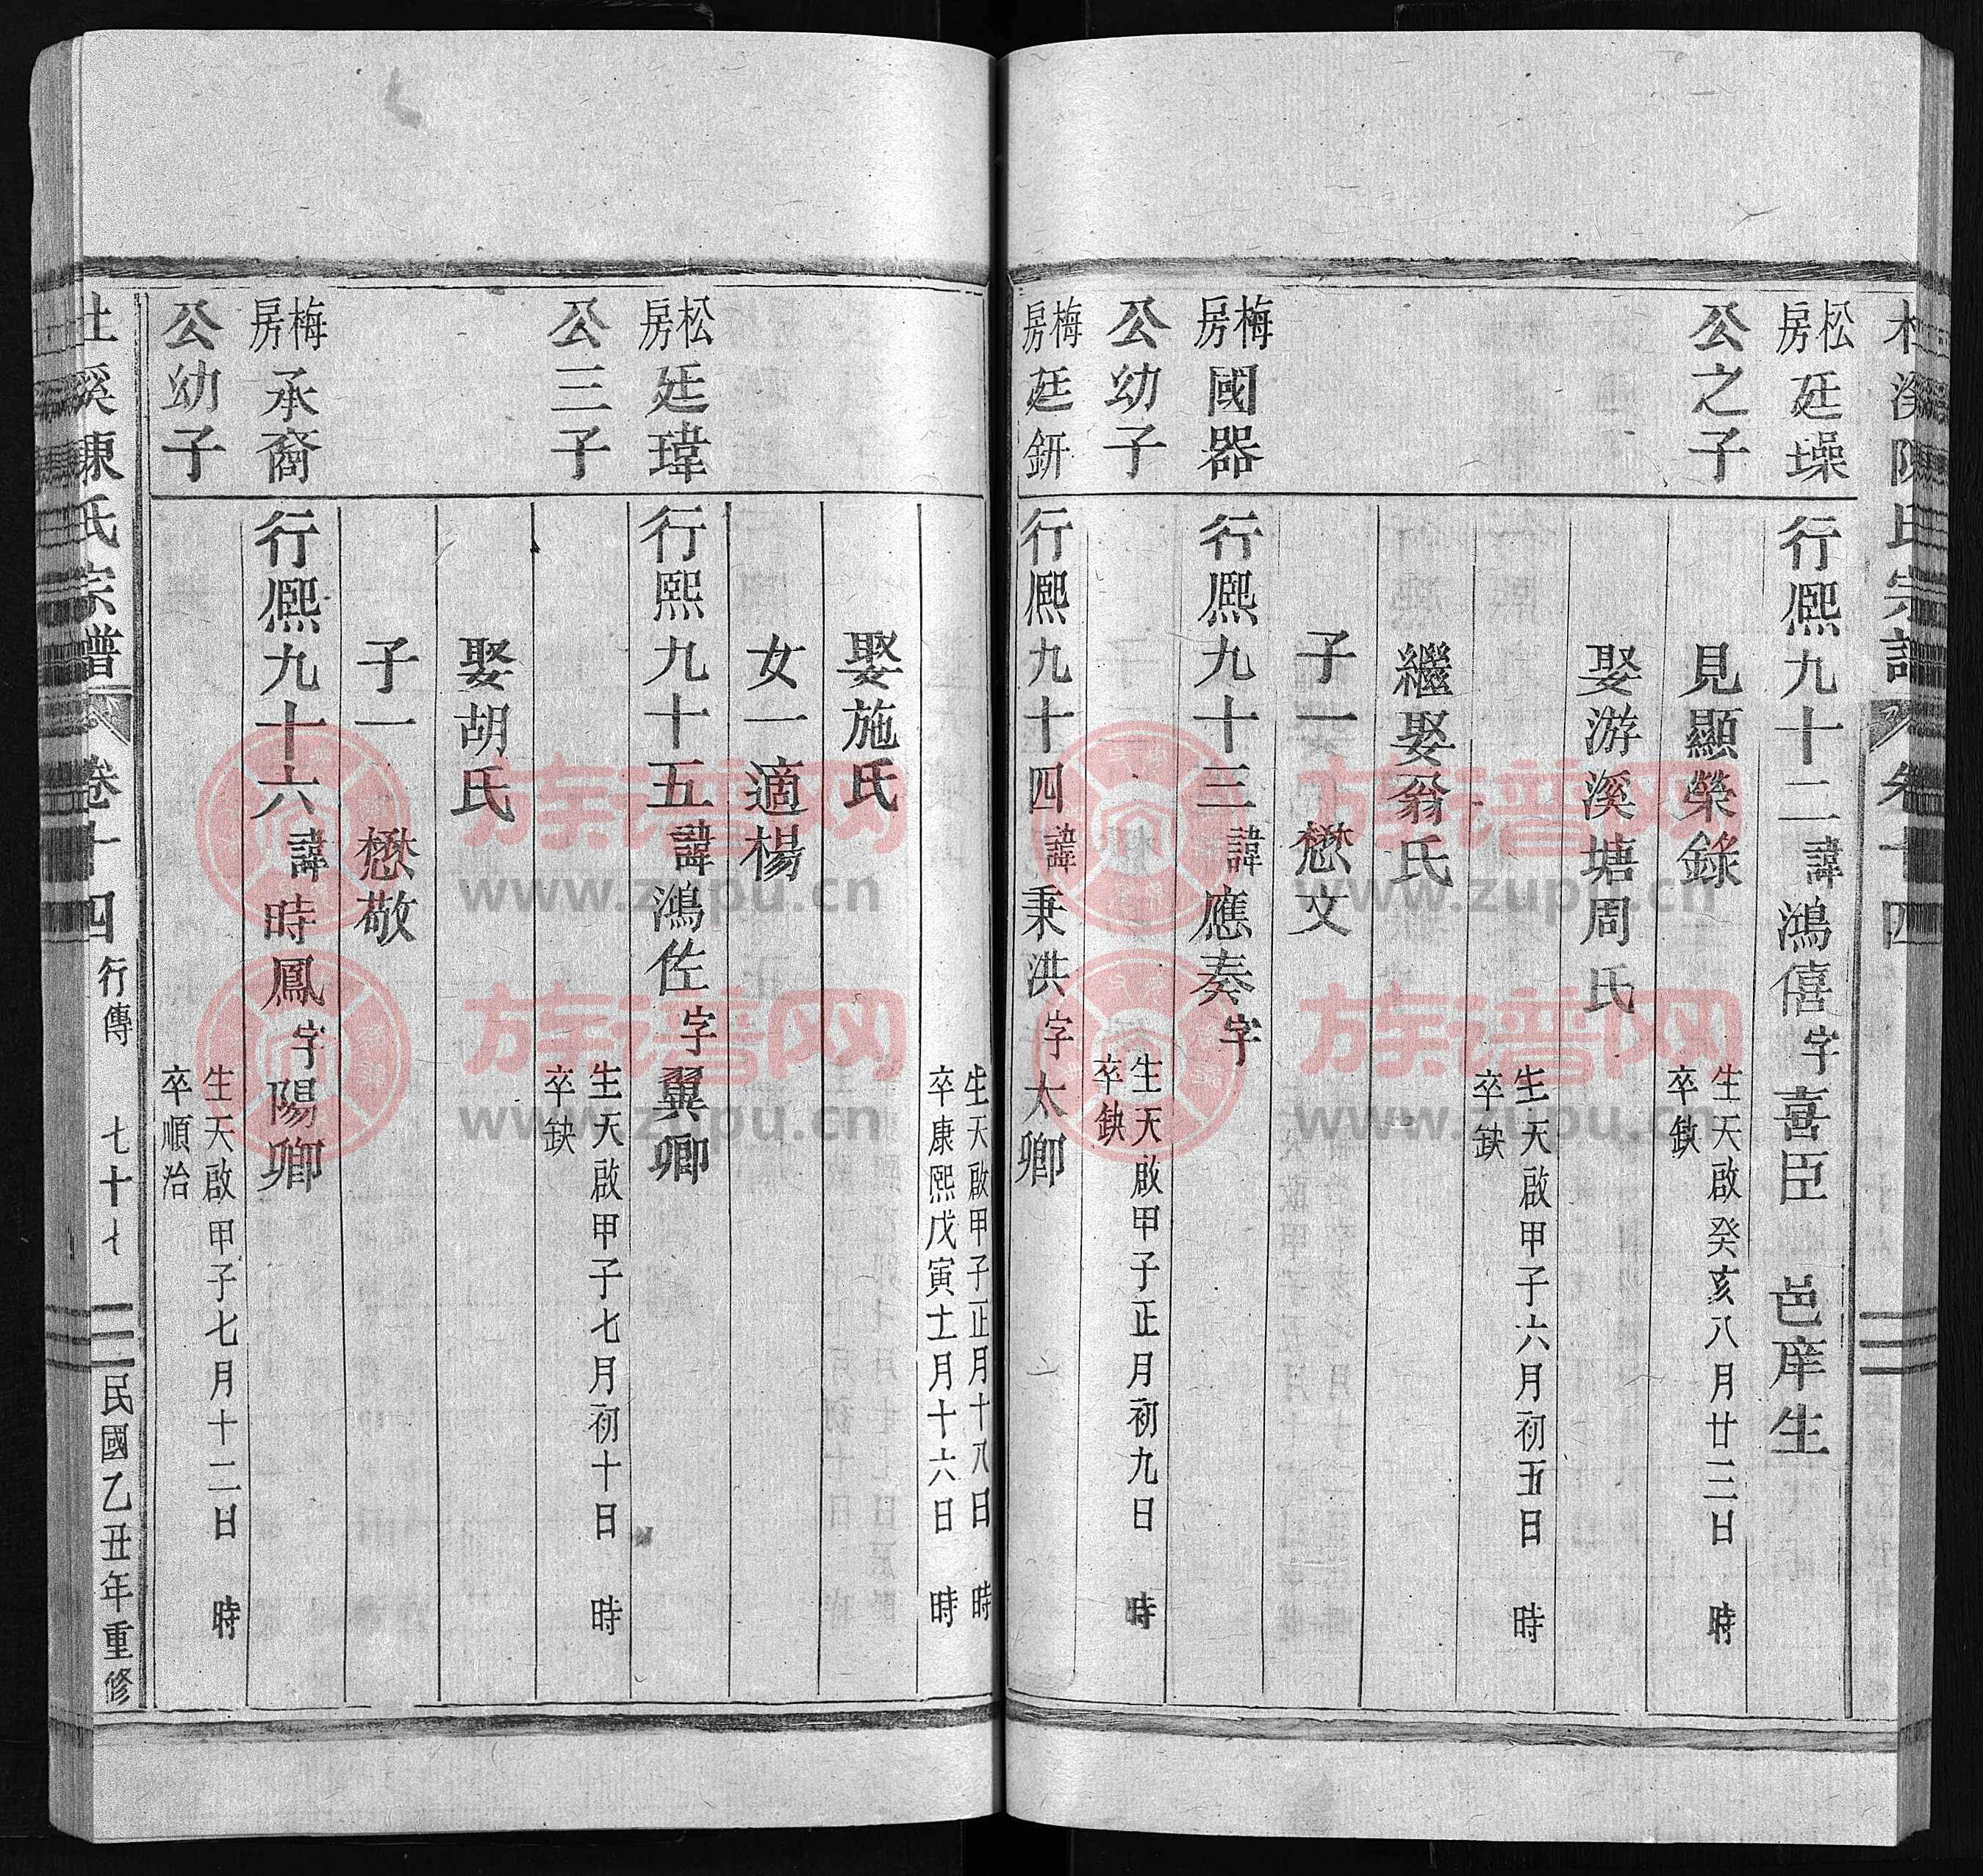 松房廷埰
公之子
行熈九十二諱鴻僖字喜臣 邑庠生
見顯榮錄
生天啟癸亥八月廿三日 時
卒缺
娶游溪塘周氏
生天啟甲子六月初五日 時
卒缺
繼娶翁氏
子一 懋文
梅房國器
公幼子
行熈九十三諱應奏字
生天啟甲子正月初九日 時
卒缺
梅房廷鈃
行熈九十四諱秉洪字太卿
生天啟甲子正月十八日 時
卒康熙戊寅十一月十六日 時
娶施氏
女一適楊
松房廷瑋
公三子
行熙九十五諱鴻佐字翼卿
生天啟甲子七月初十日 時
卒缺
娶胡氏
子一 懋敬
梅房承裔
公幼子
行熈九十六諱時鳳字陽卿
生天啟甲子七月十二日 時
卒順治
杜溪陳氏宗譜 卷十四 行傳 七十七 民國乙丑年重修
族谱网
www.zupu.cn
族谱网
www.zupu.cn
族谱网
www.zupu.cn
族谱网
www.zupu.cn